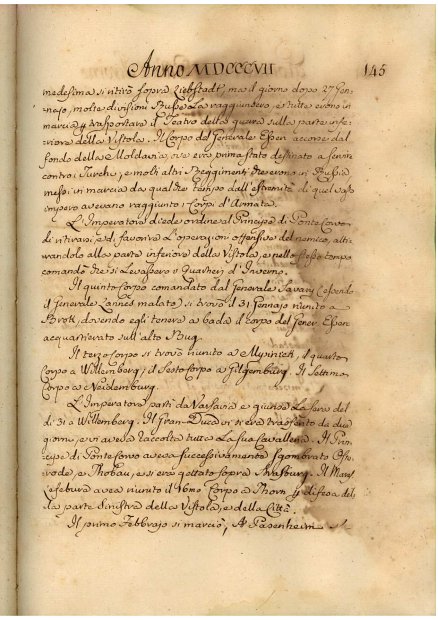 Anno MDCCCVII 145
medesima si ritirò sopra Liebstadt, ma il giorno dopo 27 Gen-
najo, molte divisioni Russe la raggiunsero, e tutte erono in
marcia p trasportare il Teatro della guera sulla parte infe-
riore della Vistola. Il Corpo del Generale Essen accorse dal
fondo della Moldavia, ove era prima stato destinato a servire
contro i Turchi, e molti altri Reggimenti che erono in Russia
messi in marcia da qualche tempo dall'estremità di quel vasto
impero avevano raggiunto i Corpi d'Armata.
L'Imperatore diede ordine al Principe di Ponte Corvo
di ritirarsi, e di favorire l'operazioni offensive del nemico, atti-
randolo alla parte inferiore della Vistola, e nello stesso tempo
comandò che si levassero i Quartieri d'Inverno.
Il quinto Corpo comandato dal Generale Savary essendo
il Generale Lannes malato, si trovò il 31 Gennajo riunito a
Brok, dovendo egli tenere a bada il Corpo del Gener. Essen
acquartierato sull'alto Bug.
Il terzo Corpo si trovò riunito a Mysnieck, il quarto
Corpo a Willemberg, il Sesto Corpo a Gilgemburg. Il Settimo
Corpo a Neidemburg.
L'Imperatore partì da Varsavia e giunse la sera del
dì 31 a Willemberg. Il Gran-Duca vi si era trasferito da due
giorni, e vi aveva raccolta tutta la sua Cavalleria. Il Prin-
cipe di Ponte Corvo aveva successivamente sgombrato Oste-
rode, e Thobau, e si era gettato sopra Strasburg. Il Mares
Lefebure avea riunito il 16mo Corpo a Thorn p difesa del-
la parte Sinistra della Vistola, e della Città.
Il primo Febbrajo si marciò, A Pasenheim si